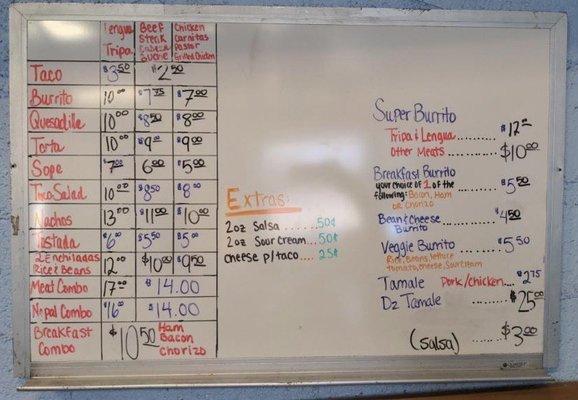 Lengua Tripa | Beef Steak Cabeza Buche | Chicken Carnitas Pastor Grilled Chicken
Taco $3.50 $2.50
Burrito 10.00 $7.75 $7.00
Quesadilla 10.00 $8.50 $8.00
Torta 10.00 $9.00 $9.00
Sope $7.00 6.00 $5.00
Taco Salad 10.00 $8.50 $8.00
Nachos 13.00 $11.00 $10.00
Tostada $6.00 $5.50 $5.00
2 Enchiladas Rice & Beans 12.00 $10.00 $9.50
Meat Combo 17.00 $14.00
Nopal Combo $16.00 $14.00
Breakfast Combo $10.50 Ham Bacon Chorizo
Extras:
2oz Salsa ...... 50¢
2oz Sour Cream .... 50¢
cheese p/taco .... 25¢
Super Burrito
Tripa i Lengua ......... $12
Other Meats ......... $10.00
Breakfast Burrito
your choice of 1 of the ......... $5.50
following: Bacon, Ham
or Chorizo
Bean & Cheese ......... $4.50
Burrito
Veggie Burrito ......... $5.50
Rice, Beans, lettuce
tomato, cheese, Sour Cream
Tamale Pork/chicken .... $2.75
Dz Tamale ......... $25.00
(salsa) ...... $3.00